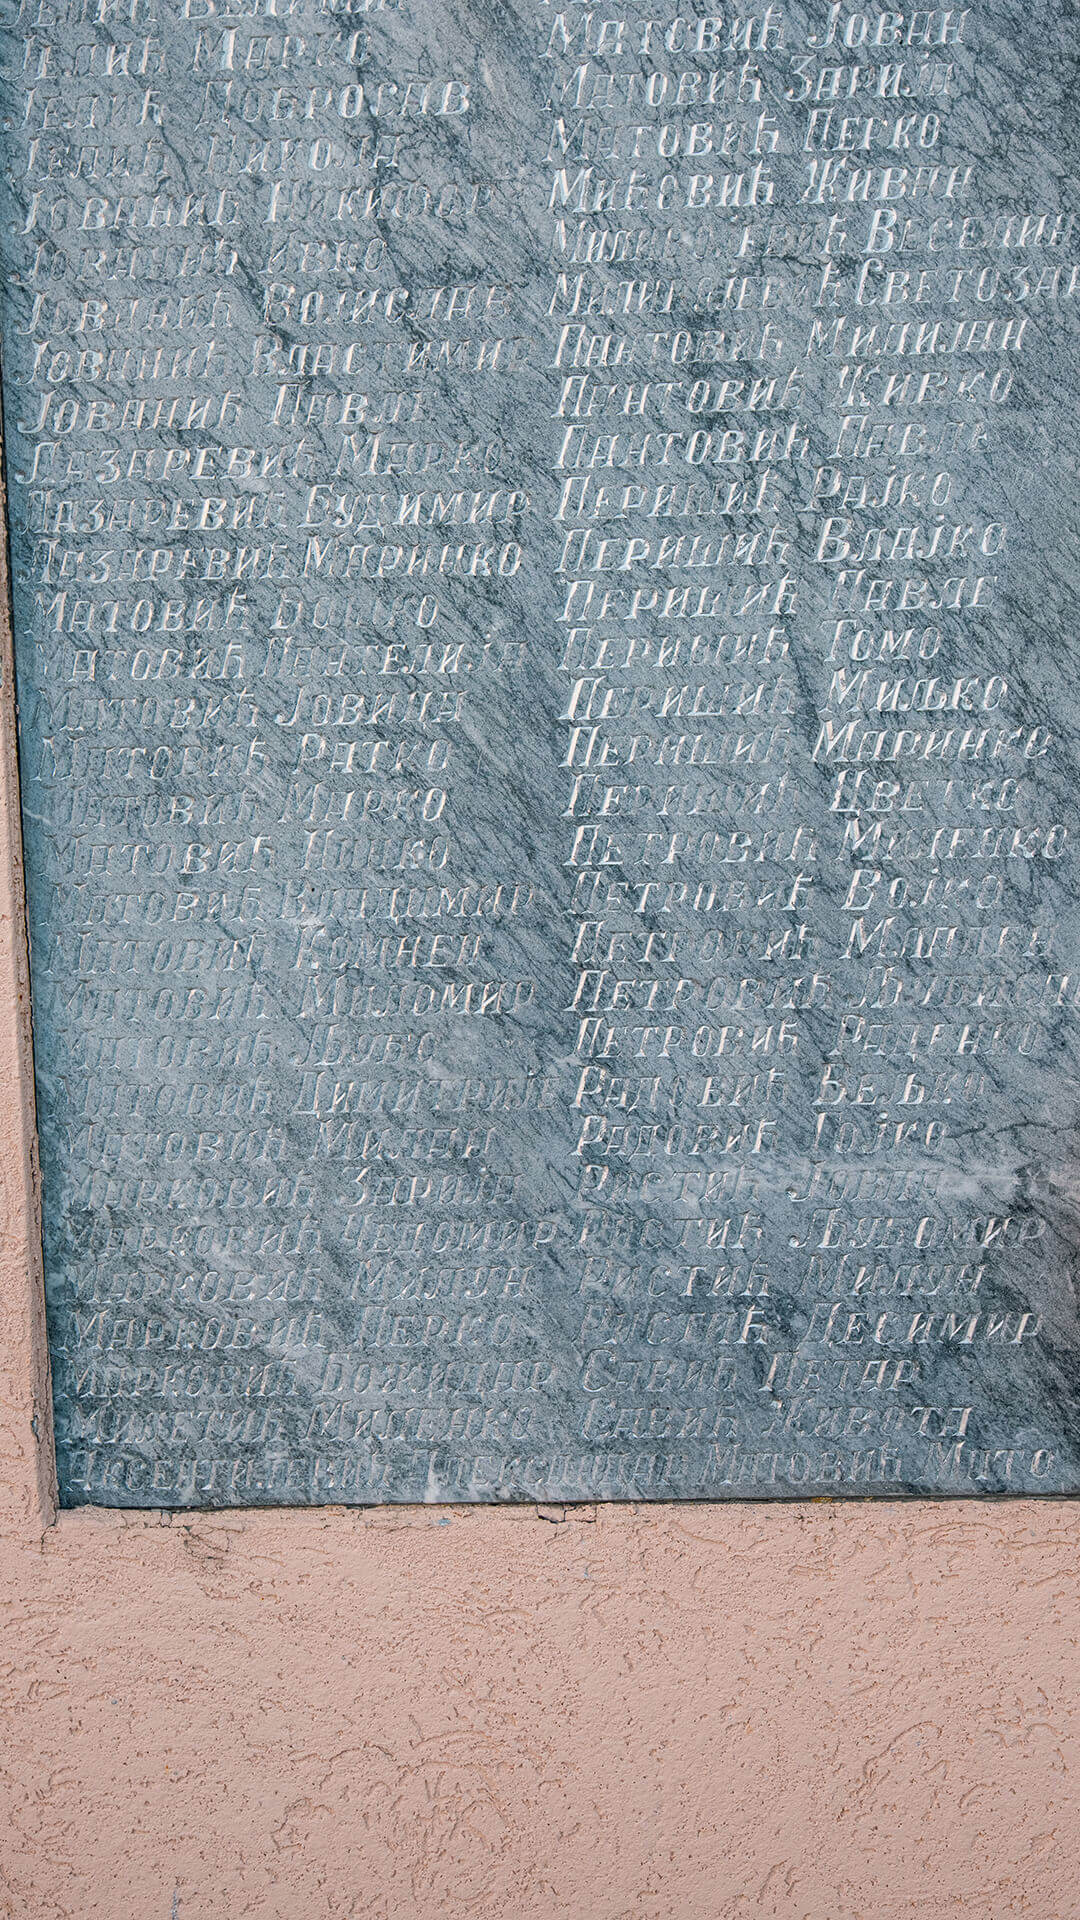 Јелић Велимир
Јелић Марко
Јелић Добросав
Јелић Никола
Јованић Никифор
Јованић Ивко
Јованић Војислав
Јованић Властимир
Јованић Павле
Лазаревић Марко
Лазаревић Будимир
Лазаревић Маринко
Матовић Бошко
Матовић Пантелија
Матовић Јовица
Матовић Ратко
Матовић Марко
Матовић
Матовић Владимир
Матовић Комнен
Матовић Миломир
Матовић Љубо
Матовић Димитрије
Матовић Милан
Марковић Зарија
Марковић Чедомир
Марковић Милун
Марковић Перко
Марковић Божидар
Милетић Миленко
Александар
Матовић Јован
Матовић Зарија
Матовић Перко
Мићовић Живан
Миливојевић Веселин
Миливојевић Светозар
Пантовић Милијан
Пантовић Живко
Пантовић Павле
Перишић Рајко
Перишић Влајко
Перишић Павле
Перишић Томо
Перишић Миљко
Перишић Маринко
Перишић Цветко
Петровић Миленко
Петровић Војко
Петровић Младен
Петровић Љубиса
Петровић Раденко
Радовић Вељко
Радовић Гојко
Ристић Јован
Ристић Љубомир
Ристић Милун
Ристић Десимир
Савић Петар
Савић Живота
Матовић Мито